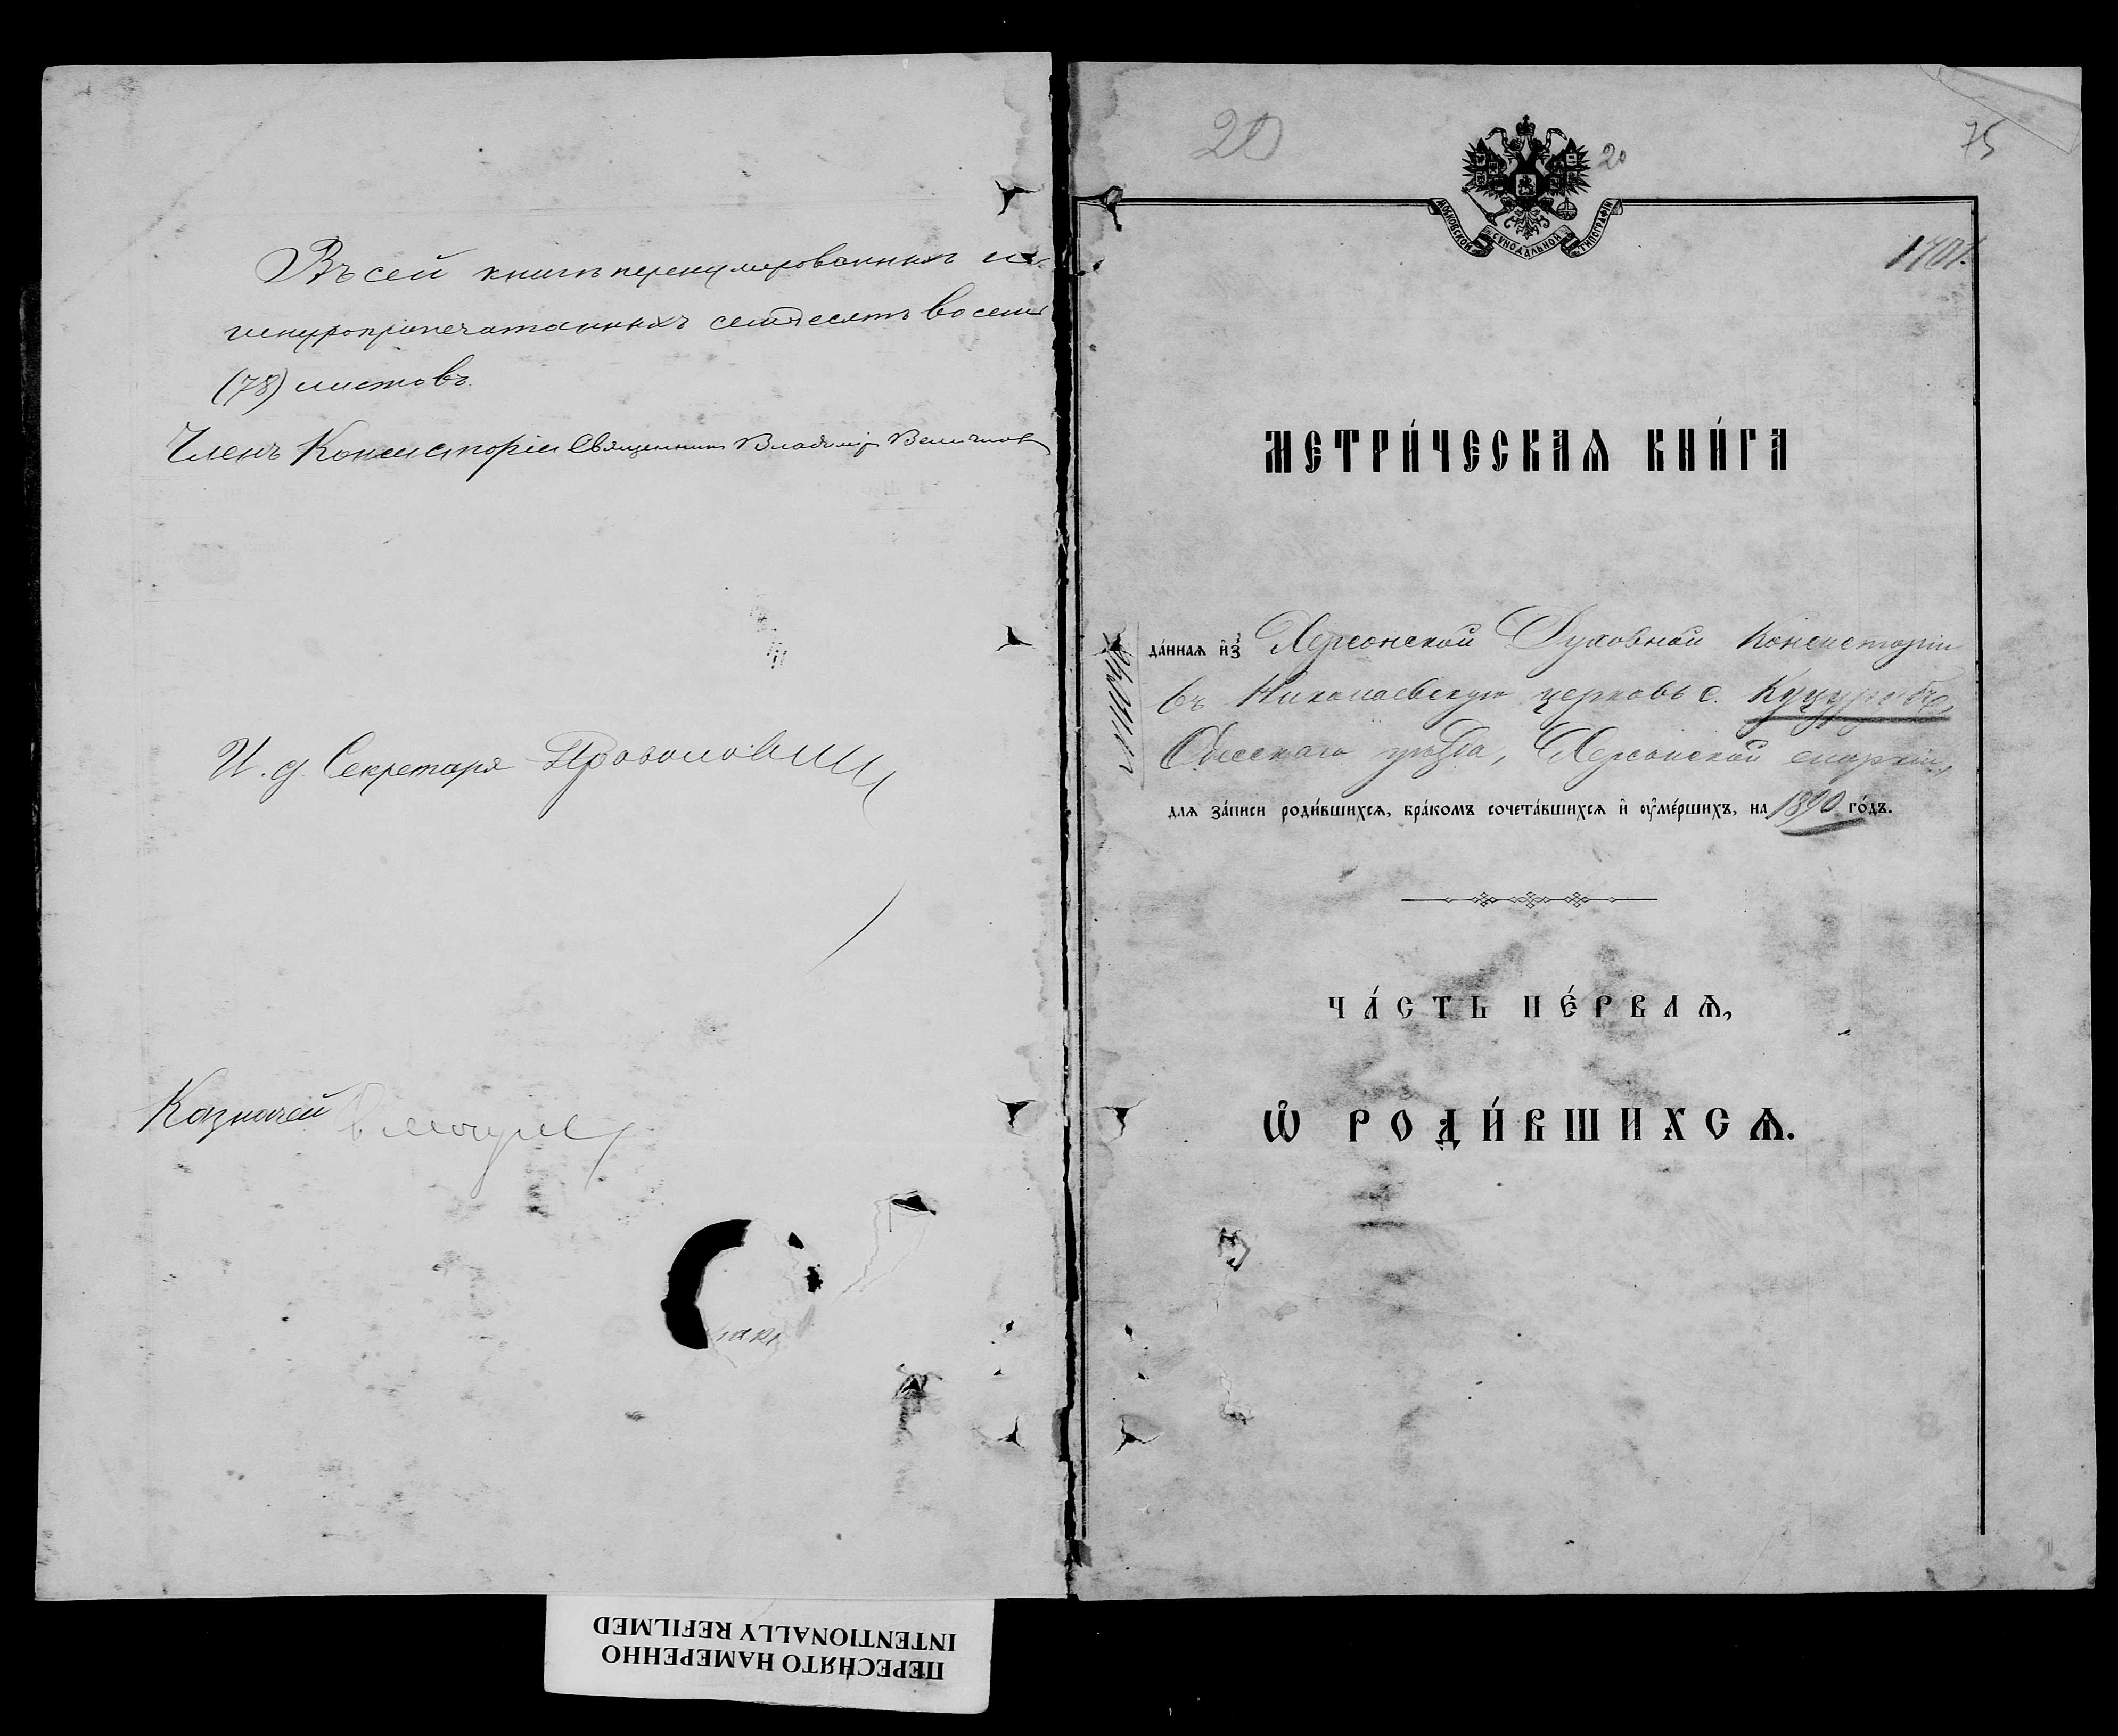 Въ сей книгѣ перенумерованныхъ и
шнуропропечатанныхъ семдесятъ восемь
(78) листовъ.
Членъ Консисторіи Священникъ Владиміръ
И. д. Секретаря
Казначей
20
20
75
МОСКОВСКОЙ СѴНОДАЛЬНОЙ ТИПОГРАФІИ
МЕТРИ́ЧЕСКАѦ КНИ́ГА
да́ннаѧ и҆з̾ Херсонской Духовной Консисторіи
въ Николаевскую церковь с. Куцуруба,
Одесскаго уѣзда, Херсонской епархіи,
длѧ за́писи роди́вшихсѧ, бра́комъ сочета́вшихсѧ и҆ ѹ҆ме́ршихъ, на 1890 го́дъ.
ЧА́СТЬ ПЕ́РВАѦ,
Ѡ҆ РОДИ́ВШИХСѦ.
ПЕРЕСНЯТО НАМЕРЕННО
INTENTIONALLY REFILMED